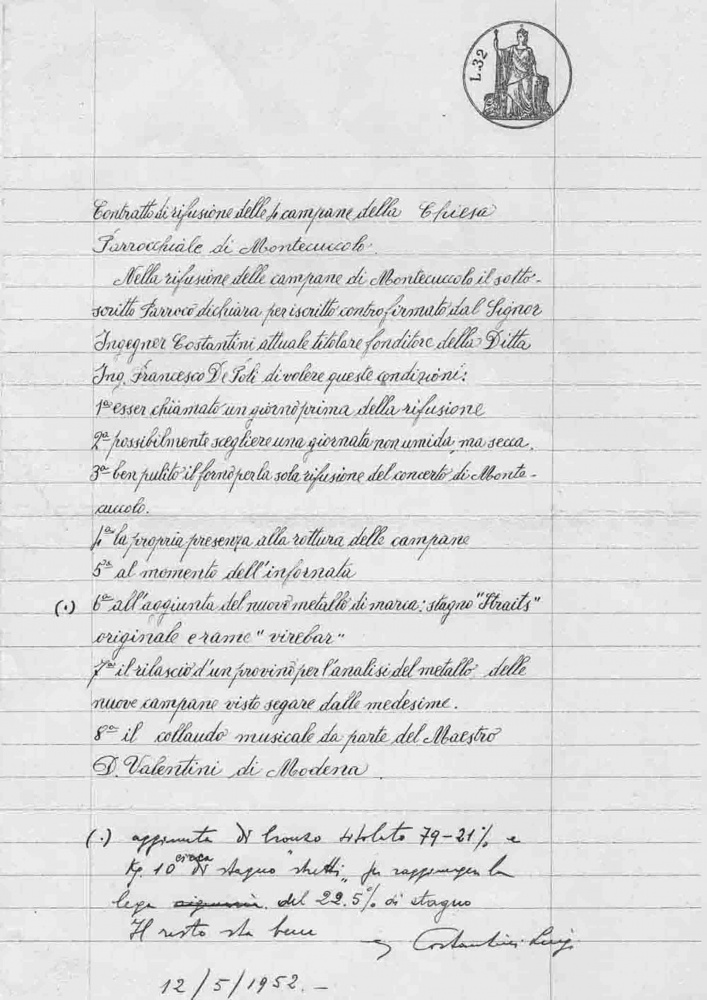 L.32
Contratto di rifusione delle 4 campane della Chiesa
Parrocchiale di Montecuccolo.
Nella rifusione delle campane di Montecuccolo il sotto-
scritto Parroco dichiara per iscritto controfirmato dal Signor
Ingegner Costantini attuale titolare fonditore della Ditta
Ing. Francesco De Poli di volere queste condizioni:
1ª esser chiamato un giorno prima della rifusione
2ª possibilmente scegliere una giornata non umida, ma secca.
3ª ben pulito il forno per la sola rifusione del concerto di Monte-
cuccolo.
4ª la propria presenza alla rottura delle campane
5ª al momento dell'infornata
(.) 6ª all'aggiunta del nuovo metallo di marca: stagno "Straits"
originale e rame "virebar"
7ª il rilascio d'un provino per l'analisi del metallo delle
nuove campane visto segare dalle medesime.
8ª il collaudo musicale da parte del Maestro
D. Valentini di Modena.
(.) aggiunta di bronzo titolato 79-21% e
Kg. 10 circa di stagno "stretti" per raggiungere la
lega del 22.5% di stagno
Il resto sta bene
Costantini Luigi
12/5/1952.-